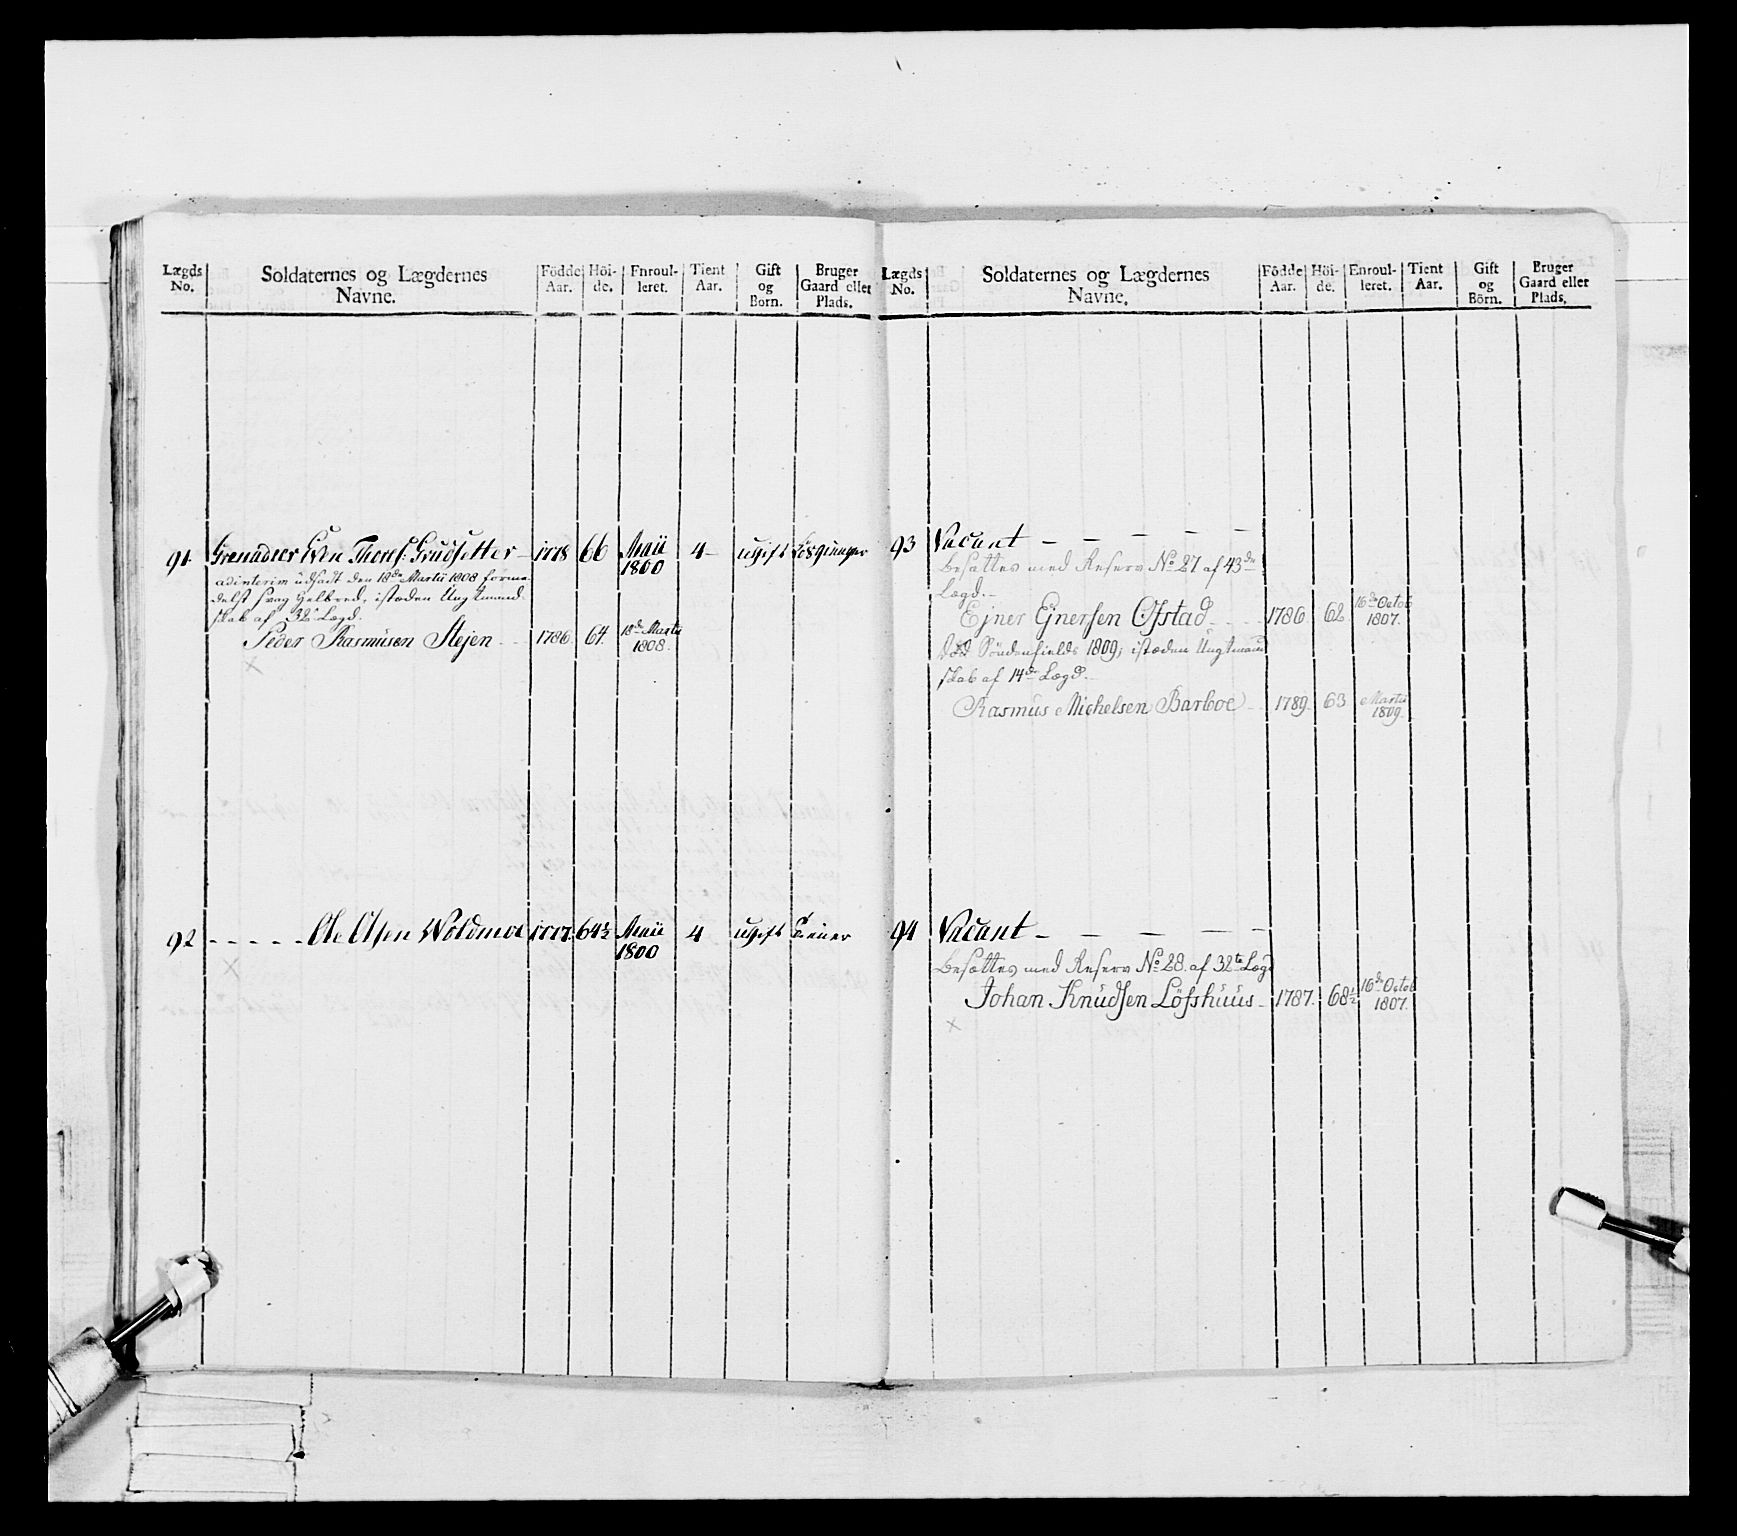 Lægds No.
Soldaternes og Lægdernes Navne.
Födde Aar.
Höi- de.
Enroul- leret.
Tient Aar.
Gift og Born.
Bruger Gaard eller Plads.
91.
Grenadeer Iven Thoress: Grudsetter
1778
66
Maii 1800
4
ugift
Løsgienger
adinterim udsadt den 18de Martii 1808 forme-
delst svag Helbred, istæden Ungtmand-
skab af 32te Lægd.
Peder Rasmusen Stejen
1786
64.
18de Martii 1808.
×
92
Ole Olsen Woldmoe
1777.
64½
Maii 1800
4
ugift
Tiener
×
Lægds No.
Soldaternes og Lægdernes Navne.
Födde Aar.
Höi- de.
Enroul- leret.
Tient Aar.
Gift og Börn.
Bruger Gaard eller Plads.
93
Vacant
Besættes med Reserv No 27 af 43de
Lægd.
Ejner Ejnersen Ofstad
1786
62
16de Octob 1807.
Död Söndenfields 1809; istæden Ungtmand
skab af 14de Lægd.
Rasmus Michelsen Barboe
1789.
63
Martii 1809.
94
Vacant
Besættes med Reserv No 28. af 32te Lægd
Johan Knudsen Löfshuus
1787.
68½
16de Octob 1807.
×